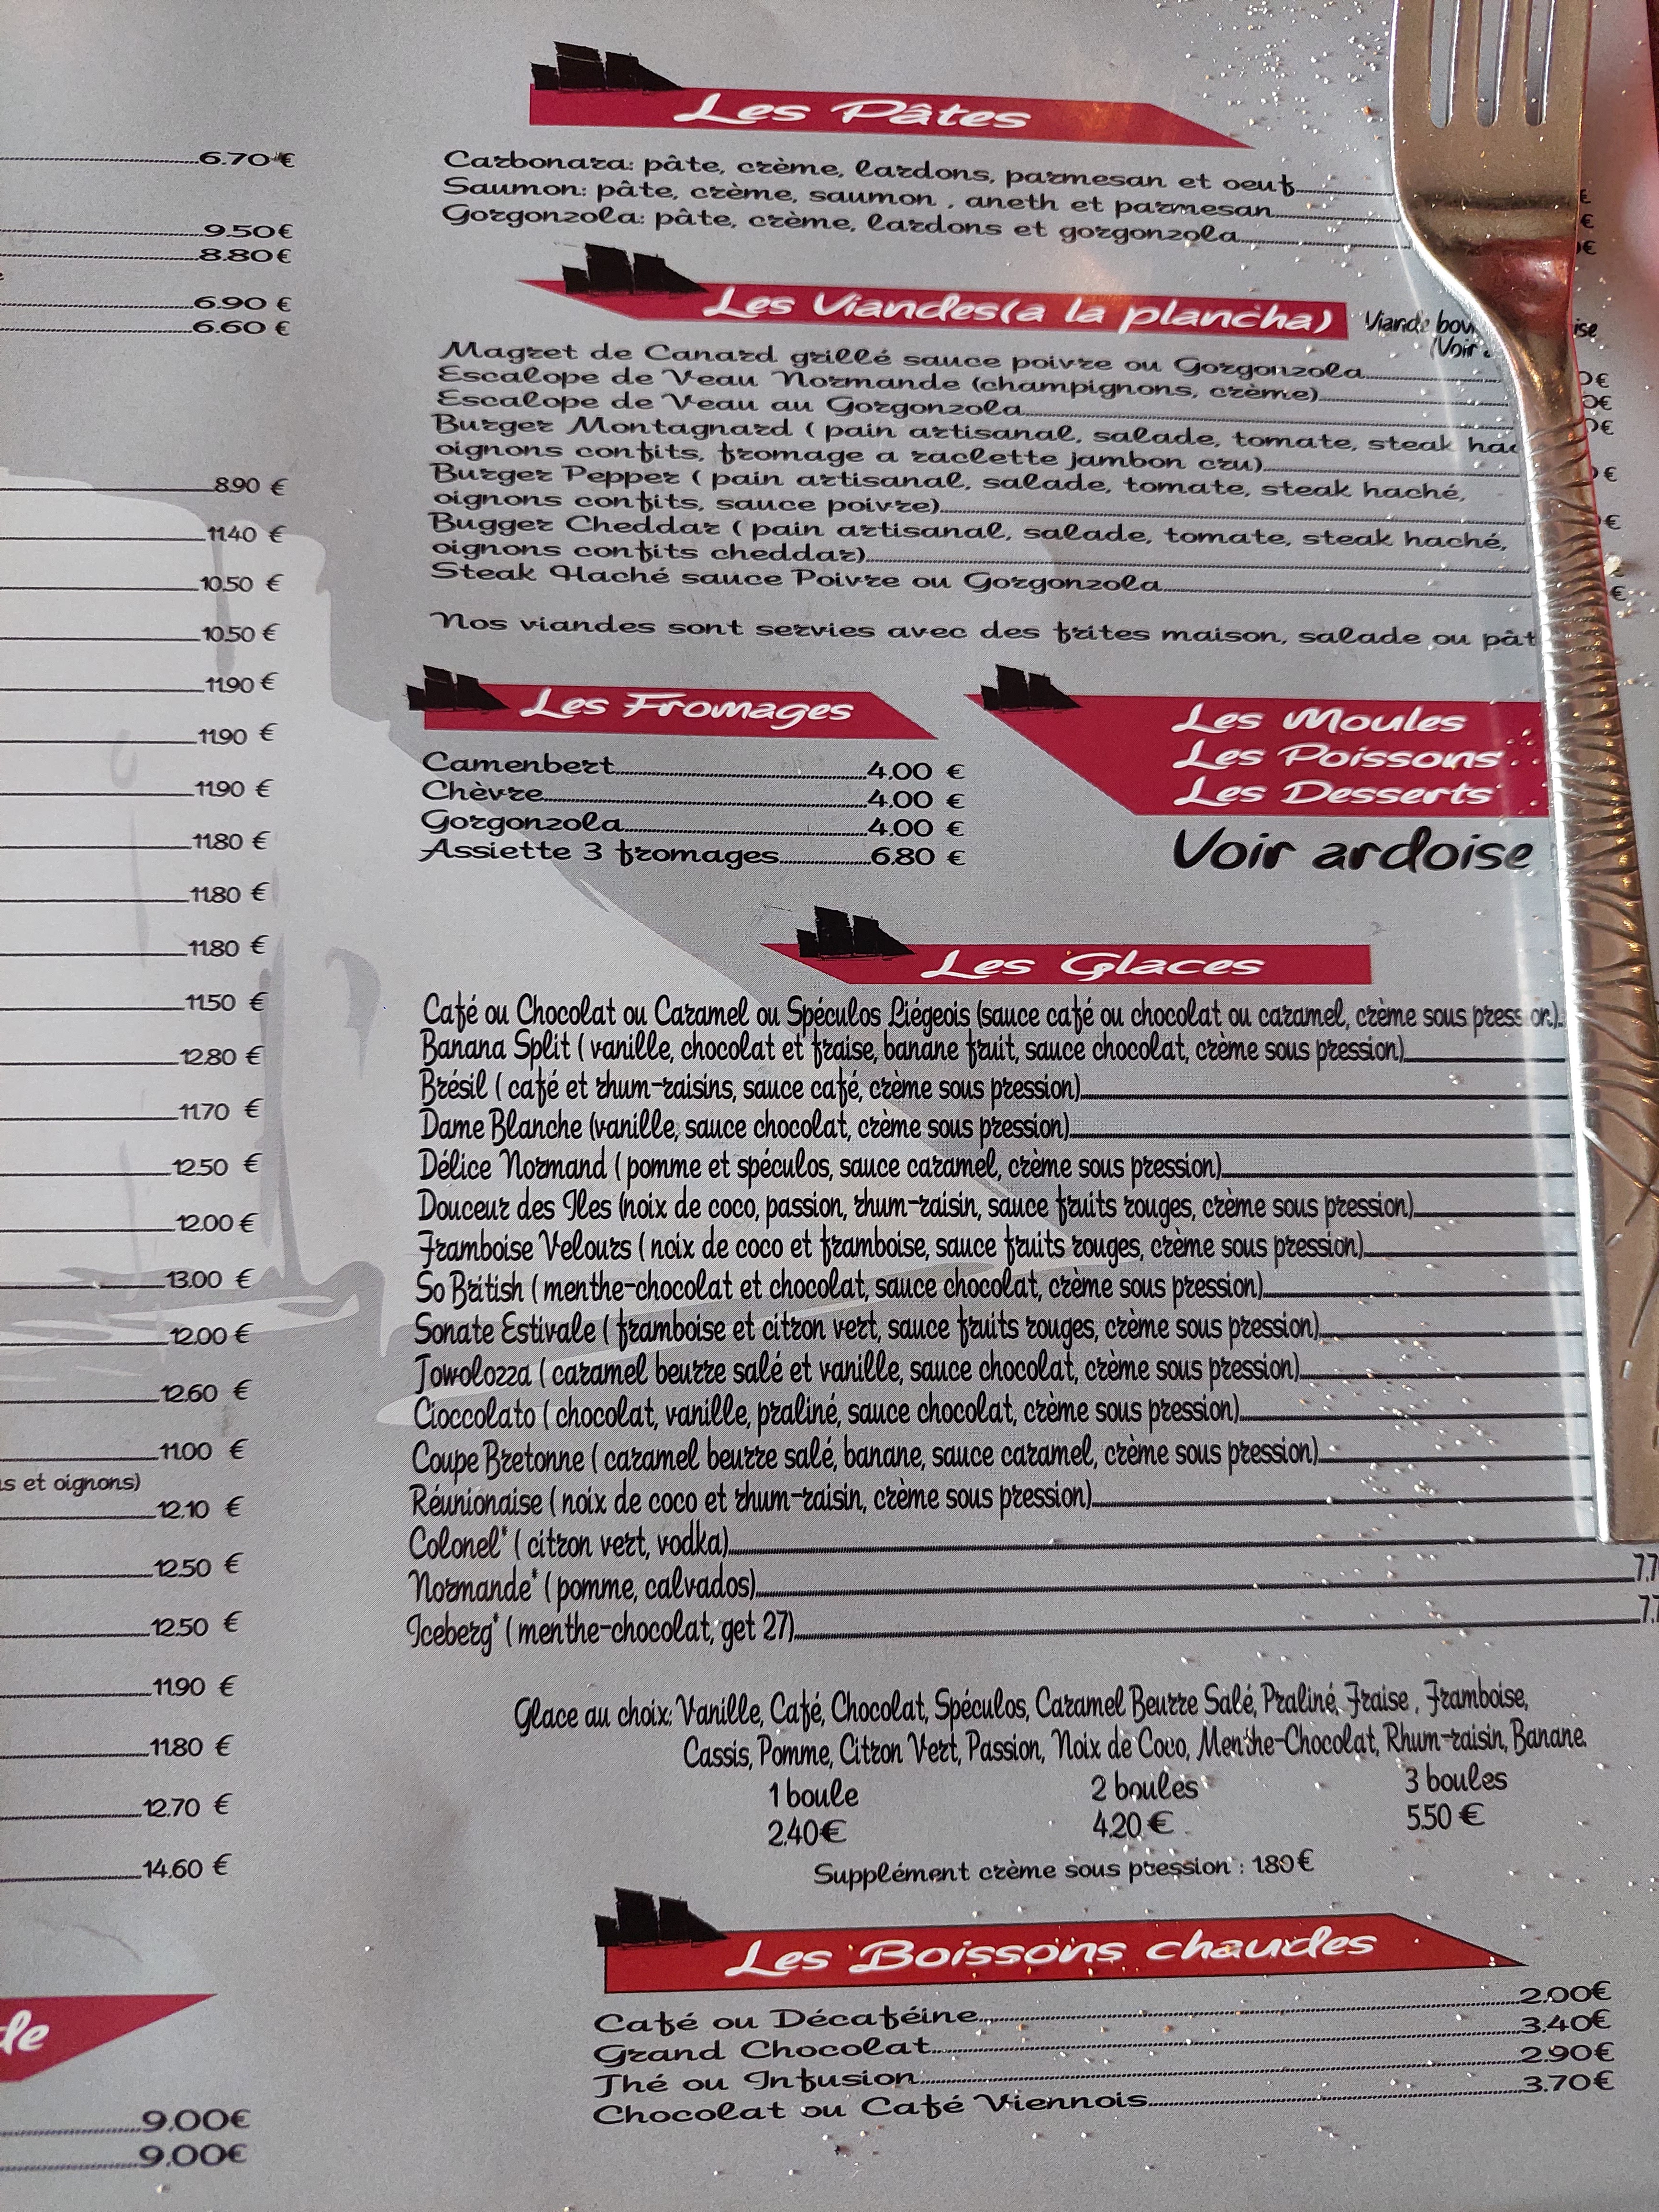 6.70 €
9.50€
8.80€
6.90 €
6.60 €
8.90 €
11.40 €
10.50 €
10.50 €
11.90 €
11.90 €
11.90 €
11.80 €
11.80 €
11.80 €
11.50 €
12.80 €
11.70 €
12.50 €
12.00 €
13.00 €
12.00 €
12.60 €
11.00 €
et oignons)
12.10 €
12.50 €
12.50 €
11.90 €
11.80 €
12.70 €
14.60 €
9.00€
9.00€
Les Pâtes
Carbonara: pâte, crème, lardons, parmesan et oeuf
Saumon: pâte, crème, saumon , aneth et parmesan
Gorgonzola: pâte, crème, lardons et gorgonzola
Les Viandes(a la plancha) Viande
(Voir
Magret de Canard grillé sauce poivre ou Gorgonzola
Escalope de Veau Normande (champignons, crème)
Escalope de Veau au Gorgonzola
Burger Montagnard ( pain artisanal, salade, tomate, steak
oignons confits, fromage a raclette jambon cru)
Burger Pepper ( pain artisanal, salade, tomate, steak haché,
oignons confits, sauce poivre)
Bugger Cheddar ( pain artisanal, salade, tomate, steak haché,
oignons confits cheddar)
Steak Haché sauce Poivre ou Gorgonzola
Nos viandes sont servies avec des frites maison, salade ou
Les Fromages
Camenbert 4.00 €
Chèvre 4.00 €
Gorgonzola 4.00 €
Assiette 3 fromages 6.80 €
Les Moules
Les Poissons
Les Desserts
Voir ardoise
Les Glaces
Café ou Chocolat ou Caramel ou Spéculos Liégeois (sauce café ou chocolat ou caramel, crème sous pression)
Banana Split ( vanille, chocolat et fraise, banane fruit, sauce chocolat, crème sous pression)
Brésil ( café et rhum-raisins, sauce café, crème sous pression)
Dame Blanche (vanille, sauce chocolat, crème sous pression)
Délice Normand ( pomme et spéculos, sauce caramel, crème sous pression)
Douceur des Iles (noix de coco, passion, rhum-raisin, sauce fruits rouges, crème sous pression)
Framboise Velours ( noix de coco et framboise, sauce fruits rouges, crème sous pression)
So British ( menthe-chocolat et chocolat, sauce chocolat, crème sous pression)
Sonate Estivale ( framboise et citron vert, sauce fruits rouges, crème sous pression)
Towolozza ( caramel beurre salé et vanille, sauce chocolat, crème sous pression)
Cioccolato ( chocolat, vanille, praliné, sauce chocolat, crème sous pression)
Coupe Bretonne ( caramel beurre salé, banane, sauce caramel, crème sous pression)
Réunionaise ( noix de coco et rhum-raisin, crème sous pression)
Colonel* ( citron vert, vodka)
Normande* ( pomme, calvados)
Iceberg* ( menthe-chocolat, get 27)
Glace au choix: Vanille, Café, Chocolat, Spéculos, Caramel Beurre Salé, Praliné, Fraise , Framboise,
Cassis, Pomme, Citron Vert, Passion, Noix de Coco, Menthe-Chocolat, Rhum-raisin, Banane.
1 boule 2 boules 3 boules
2.40€ 4.20 € 5.50 €
Supplément crème sous pression : 1.80€
Les Boissons chaudes
Café ou Décaféine 2.00€
Grand Chocolat 3.40€
Thé ou Infusion 2.90€
Chocolat ou Café Viennois 3.70€